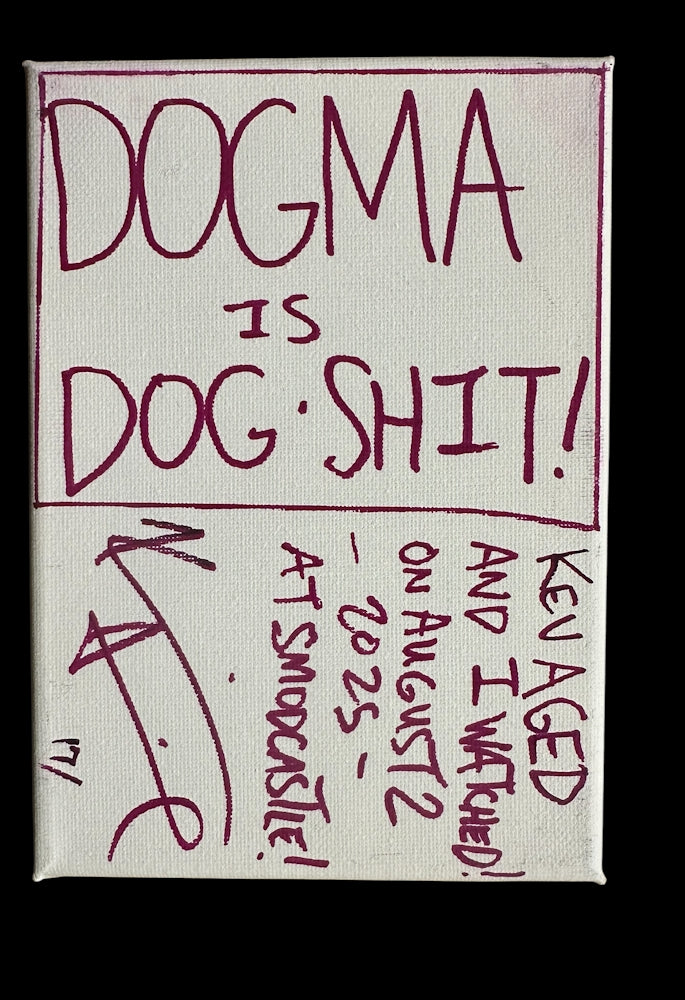 DOGMA
IS
DOG·SHIT!
KEV AGED
AND I WATCHED!
ON AUGUST 2
- 2025 -
AT SMODCASTLE!